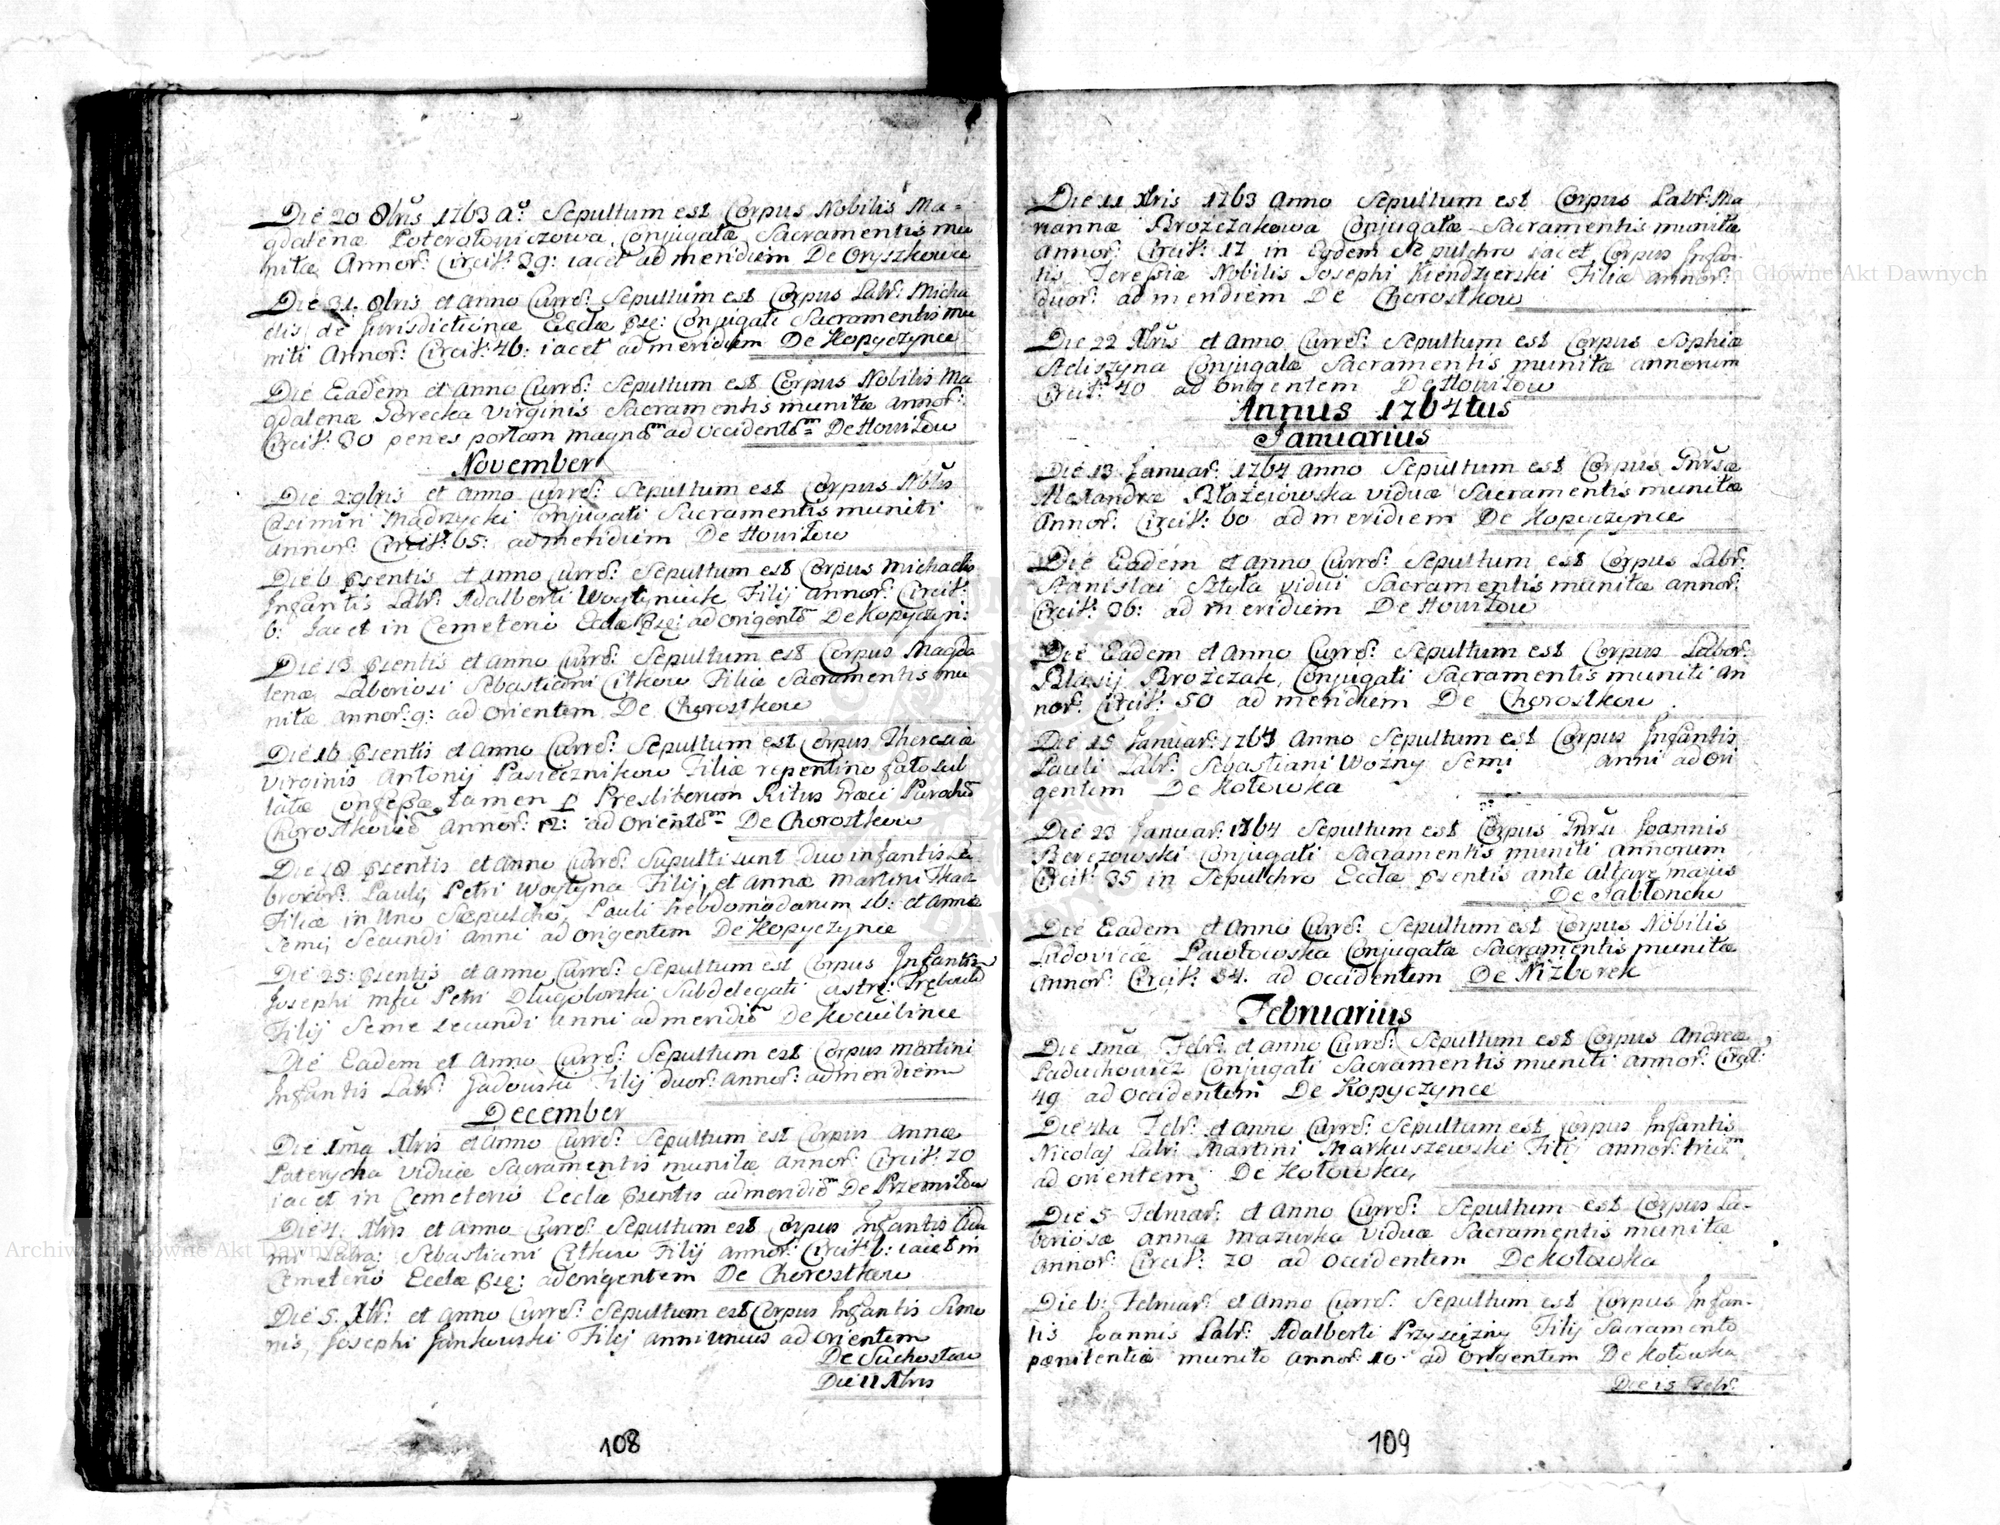 Die 20 8bris 1763 Aº Sepultum est Corpus Nobilis Ma-
gdalenæ Conjugatæ Sacramentis mu
nitæ Annor: Circit: 29: iacet ad meridiem De Oryszkowce
Die 31. 8bris et Anno Curre: Sepultum est Corpus Labr: Micha
elis de Jurisdictione Ecclæ pse: Conjugati Sacramentis mu
niti Annor: Circit: 46: iacet ad meridiem De Kopyczynce
Die Eadem et Anno Curre: Sepultum est Corpus Nobilis Ma
gdalenæ Virginis Sacramentis munitæ Annor:
Circit: 30 penes portam magnam ad Occidentem De Howiłow
November
Die 2: 9bris et Anno Curre: Sepultum est Corpus Nblis
Casimiri Mądrzycki Conjugati Sacramentis muniti
Annor: Circit: 65: ad meridiem De Howiłow
Die 6 psentis et Anno Curre: Sepultum est Corpus Michaelis
Infantis Labr: Adalberti Woytyniuk Filij Annor: Circit:
6: Jacet in Cemeterio Ecclæ pse: ad Origente De Kopyczyn:
Die 13 psentis et Anno Curre: Sepultum est Corpus Magda
lenæ Laboriosi Sebastiani Citkow Filiæ Sacramentis mu
nitæ Annor: 9: ad Orientem De Chorostkow
Die 16 psentis et Anno Curre: Sepultum est Corpus Theresiæ
Virginis Antonij Pasiecznikow Filiæ repentino fato sub
latæ Confessæ tamen p Presbiterum Ritus Græci Paroch
Annor: 12: ad Oriente De Chorostkow
Die 18 psentis et Anno Curre: Supulti sunt Duo infantis La
Pauli Petri Woytyna Filij, et Annæ Martini
Filiæ in Uno Sepulchro, Pauli hebdomadarum 16: et Annæ
Semij Secundi Anni ad Origentem De Kopyczynce
Die 25: psentis et Anno Curre: Sepultum est Corpus Infantis
Josephi Mfci Petri Długoborski Subdelegati Castre:
Filij Seme secundi Anni ad meridie De Kociubince
Die Eadem et Anno Curre: Sepultum est Corpus Martini
Infantis Labr: Filij duor: Annor: ad meridiem
December
Die 1ma Xbris et Anno Curre: Sepultum est Corpus Annæ
Viduæ Sacramentis munitæ Annor: Circit: 70
iacet in Cemeterio Ecclæ psentis ad meridie De Przemiłow
Die 4. Xbris et Anno Curre: Sepultum est Corpus Infantis Ada
mi Labra: Sebastiani Citkow Filij Annor: Circit: 6: iacet in
Cemeterio Ecclæ pse: ad origentem De Chorostkow
Die 5. Xbr: et Anno Curre: Sepultum est Corpus Infantis Simo
nis, Josephi Jankowski Filij Anni unius ad Orientem
De Suchostaw
Die 11 Xbris
108
Die 11 Xbris 1763 Anno Sepultum est Corpus Labr: Ma
riannæ Brożczakowa Conjugatæ Sacramentis munitæ
Annor: Circit: 17 in Eqdem Sepulchro iacet Corpus Infan-
tis Teressiæ Nobilis Josephi Kiendzierski Filiæ Annor:
duor: ad meridiem De Chorostkow
Die 22 Xbris et Anno Curre: Sepultum est Corpus Sophiæ
Conjugatæ Sacramentis munitæ Annorum
Circit: 40 ad Origentem De Howiłow
Annus 1764tus
Januarius
Die 13 Januar: 1764 Anno Sepultum est Corpus Gnrsæ
Alexandræ Błażeiowska Viduæ Sacramentis munitæ
Annor: Circit: 60 ad meridiem De Kopyczynce
Die Eadem et Anno Curre: Sepultum est Corpus Labr:
Stanislai Sztyła Vidui Sacramentis munitæ Annor:
Circit: 36: ad meridiem De Howiłow
Die Eadem et Anno Curre: Sepultum est Corpus Labor:
Blasij Brożczak, Conjugati Sacramentis muniti An
nor: Circit: 50 ad meridiem De Chorostkow
Die 15 Januar: 1764 Anno Sepultum est Corpus Infantis
Pauli Labr: Sebastiani Woźny Semi Anni ad Ori
gentem De Kotowka
Die 23 Januar: 1764 Sepultum est Corpus Gnrsi Joannis
Berezowski Conjugati Sacramentis muniti Annorum
Circit: 35 in Sepulchro Ecclæ psentis ante Altare majus
De Jabłonow
Die Eadem et Anno Curre: Sepultum est Corpus Nobilis
Ludovicæ Pawłowska Conjugatæ Sacramentis munitæ
Annor: Circit: 34. ad Occidentem De Niżborek
Februarius
Die 1ma Febr: et Anno Curre: Sepultum est Corpus Andreæ
Paduchowicz Conjugati Sacramentis muniti Annor: Circit:
49 ad Occidentem De Kopyczynce
Die 4ta Febr: et Anno Curre: Sepultum est Corpus Infantis
Nicolaj Labr: Martini Markuszewski Filij Annor: triu
ad orientem De Kotowka,
Die 5 Februar: et Anno Curre: Sepultum est Corpus La-
boriosæ Annæ Mazurka Viduæ Sacramentis munitæ
Annor: Circit: 70 ad Occidentem De Kotowka
Die 6: Februar: et Anno Curre: Sepultum est Corpus Infan-
tis Joannis Labr: Adalberti Przysiężny Filij Sacramento
pænitentiæ munito Annor: 10: ad Origentem De Kotowka
Die 15 Febr:
109
Archiwum Główne Akt Dawnych